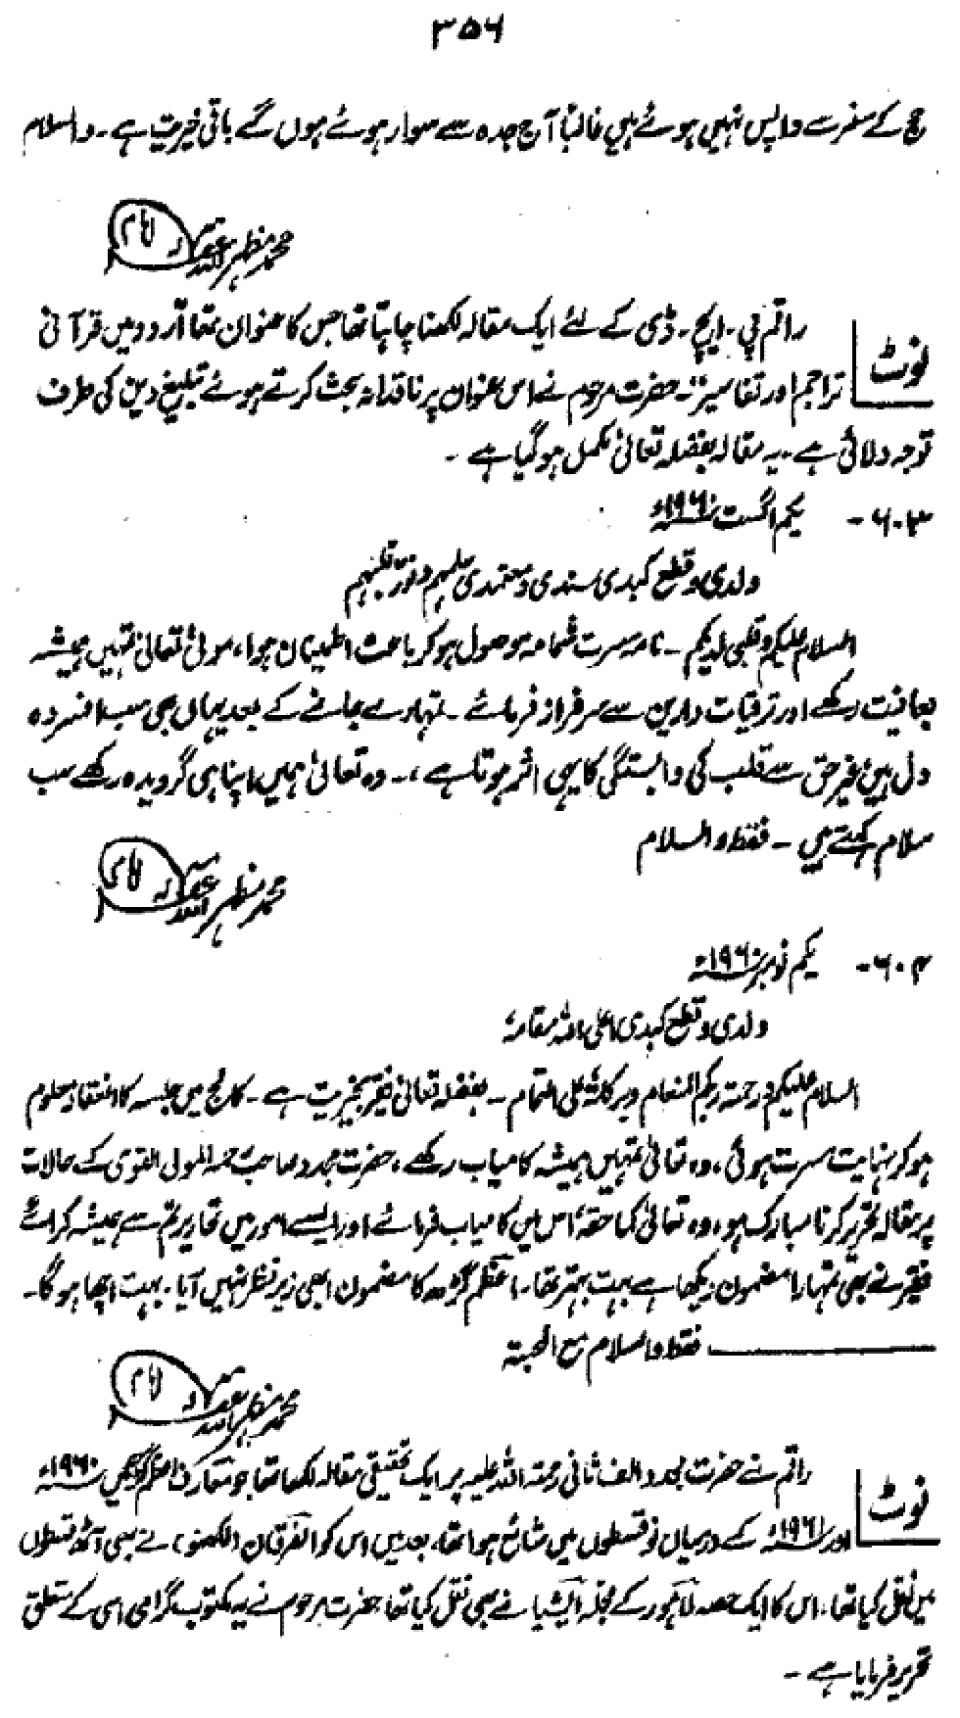 ۳۵۶
حج کے سفر سے واپس نہیں ہوئے ہیں غالباً آج جدہ سے سوار ہوئے ہوں گے باقی خیریت ہے۔ والسلام
محمد مظہر اللہ غفرلہ
راقم پی۔ ایچ۔ ڈی کے لئے ایک مقالہ لکھنا چاہتا تھا جس کا عنوان تھا "اُردو میں قرآنی
نوٹ
تراجم اور تفاسیر"۔ حضرت مرحوم نے اس عنوان پر ناقدانہ بحث کرتے ہوئے تبلیغ دین کی طرف
توجہ دلائی ہے۔ یہ مقالہ بفضلہ تعالیٰ مکمل ہو گیا ہے۔
۶۰۳- یکم اگست ۱۹۶۰ء
ولدی و قطع کبدی سندی و معتمدی سلمہم و نور قلبہم
السلام علیکم وقلبی لدیکم۔ نامہ مسرت شمامہ موصول ہو کر باعث اطمینان ہوا، مولیٰ تعالیٰ تمہیں ہمیشہ
بعافیت رکھے اور ترقیات دارین سے سرفراز فرمائے۔ تمہارے جانے کے بعد یہاں بھی سب افسردہ
دل ہیں غیر حق سے قلب کی وابستگی کا یہی اثر ہوتا ہے،۔ وہ تعالیٰ ہمیں اپنا ہی گرویدہ رکھے سب
سلام کہتے ہیں۔ فقط والسلام
محمد مظہر اللہ غفرلہ
۶۰۴- یکم نومبر ۱۹۶۰ء
ولدی و قطع کبدی اعلی اللہ مقامہ
السلام علیکم ورحمتہ ربکم المنعام وبرکاتہ علی التمام۔ بفضلہ تعالیٰ فقیر بخیریت ہے۔ کالج میں جلسہ کا انعقاد معلوم
ہو کر نہایت مسرت ہوئی، وہ تعالیٰ تمہیں ہمیشہ کامیاب رکھے، حضرت مجدد صاحب رحمہ المولی القوی کے حالات
پر مقالہ تحریر کرنا مبارک ہو، وہ تعالیٰ کما حقہٗ اس میں کامیاب فرمائے اور ایسے امور میں تحاریر تم سے ہمیشہ کرائے
فقیر نے بھی تمہارا مضمون دیکھا ہے بہت بہتر تھا۔ اعظم گڑھ کا مضمون ابھی زیر نظر نہیں آیا۔ بہت اچھا ہوگا۔
فقط والسلام مع المحبتہ
محمد مظہر اللہ غفرلہ
راقم نے حضرت مجدد الف ثانی رحمتہ اللہ علیہ پر ایک تحقیقی مقالہ لکھا تھا جو معارف اعظم گڑھ میں ۱۹۶۰ء
نوٹ
اور ۱۹۶۱ء کے درمیان نو قسطوں میں شائع ہوا تھا، بعد میں اس کو الفرقان (لکھنو) نے بھی آٹھ قسطوں
میں نقل کیا تھا، اس کا ایک حصہ لاہور کے مجلہ ایشیا نے بھی نقل کیا تھا حضرت مرحوم نے یہ مکتوب گرامی اسی کے متعلق
تحریر فرمایا ہے۔